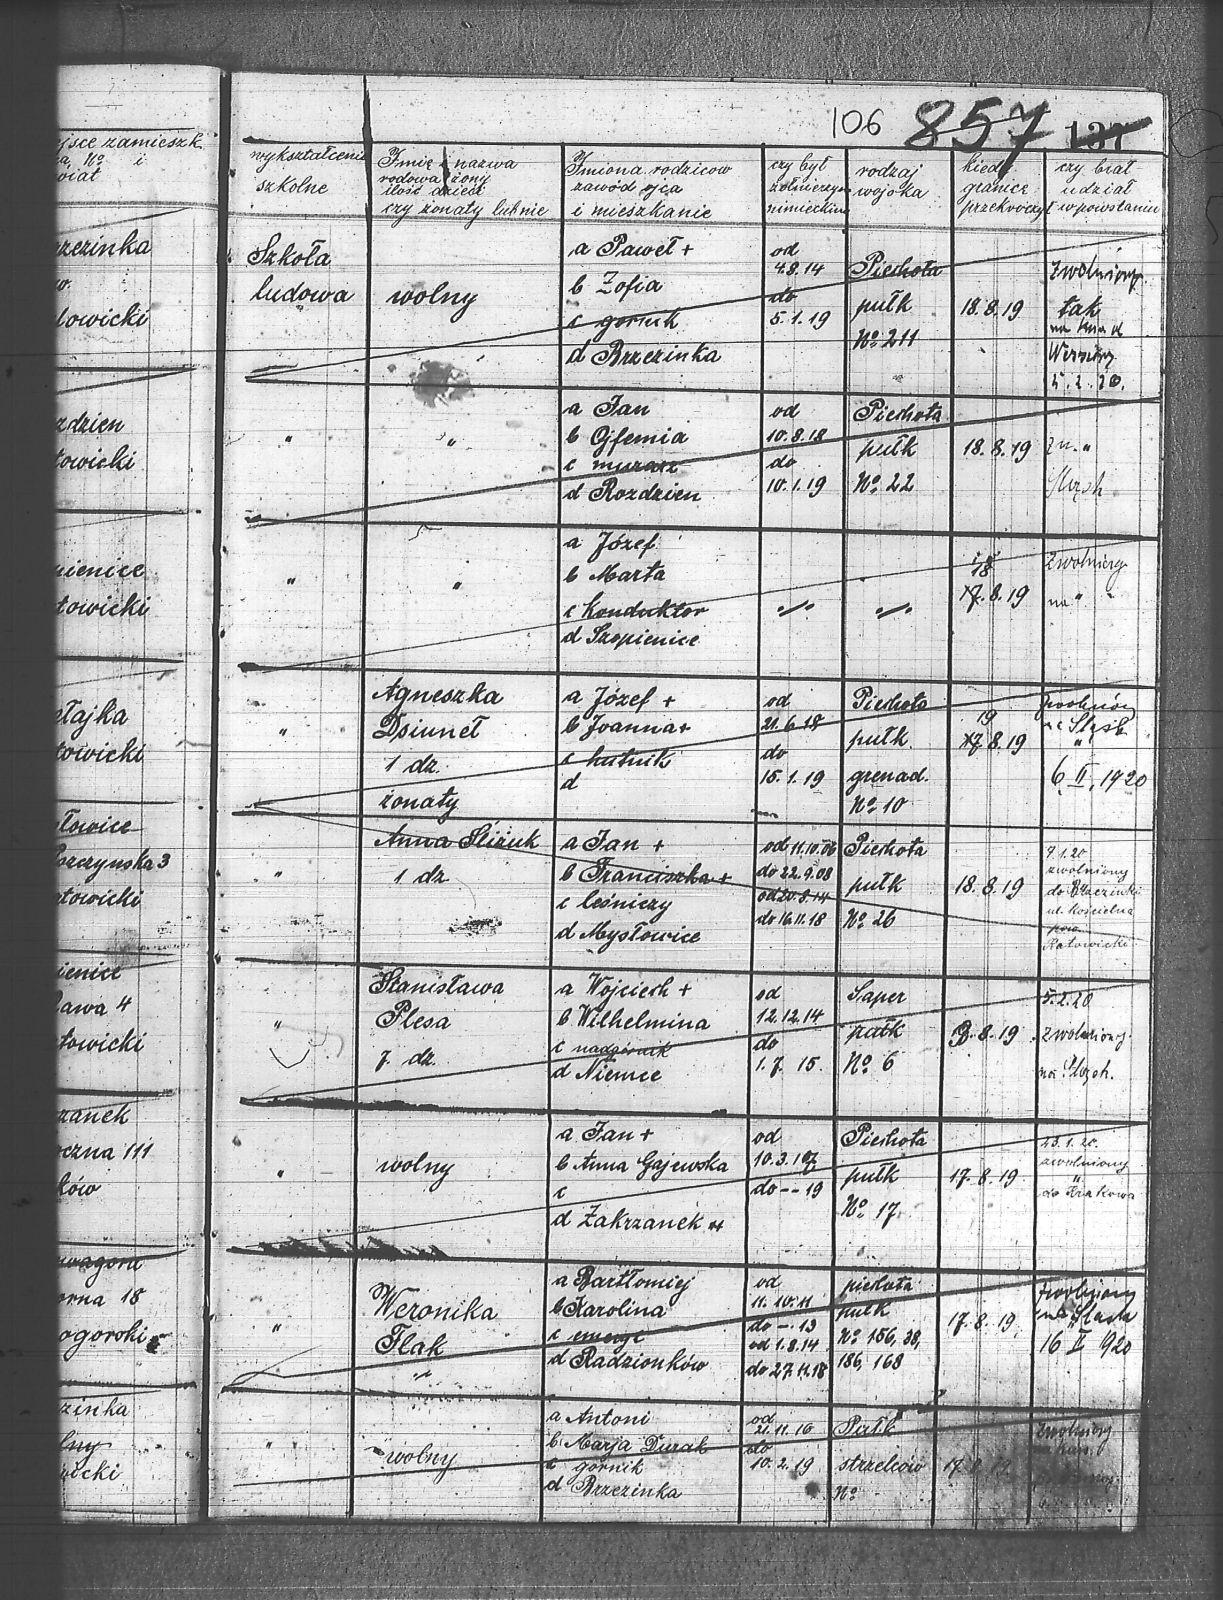 106 857 137
ejsce zamieszk.
No i
wiat
wykształcenie
szkolne
Imię i nazwa
rodowa żony
ilość dzieci
czy żonaty lub nie
Imiona rodziców
zawód ojca
i mieszkanie
czy był
żołnierzym
nimieckim
rodzaj
wojska
kiedy
granicę
przekroczył
czy brał
udział
w powstaniu
rzezinka
w.
towicki
Szkoła
ludowa
wolny
a Paweł +
b Zofia
c górnik
d Brzezinka
od
4.8.14
do
5.1.19
Piechota
pułk
No 211
18.8.19
zwolniony
tak
5.2.20.
zdzien
towicki
"
"
a Jan
b Ofemia
c murarz
d Rozdzien
od
10.8.18
do
10.1.19
Piechota
pułk
No 22
18.8.19
zw. "
Śląsk
pienice
towicki
"
"
a Józef
b Marta
c Konduktor
d Szopienice
-"-
-"-
18
17.8.19
zwolniony
na " "
etajka
towicki
"
Agneszka
Dsiunet
1 dz.
żonaty
a Józef +
b Joanna +
c hutnik
d
od
21.6.18
do
15.1.19
Piechota
pułk
grenad.
No 10
19
17.8.19
zwolniony
na Śląsk
"
6.II.1920
słowice
szczynska 3
towicki
"
Anna Śliżuk
1 dz
a Jan +
b Franciszka +
c leśniczy
d Mysłowice
od 11.10.06
do 22.9.08
od 20.8.14
do 16.11.18
Piechota
pułk
No 26
18.8.19
7.1.20
zwolniony
do Brzezinki
ul. Kościelna
pow.
Katowicki
ienice
ława 4
towicki
"
Stanisława
Plesa
7. dz.
a Wojciech +
b Wilhelmina
c nadgórnik
d Niemce
od
12.12.14
do
1.7.15.
Saper
pułk
No 6
8.19
5.2.20
zwolniony.
na Śląsk.
zanek
oczna 111
ków
"
wolny
a Jan +
b Anna Gajewska
c
d Zakrzanek
od
10.3.17
do -- 19
Piechota
pułk
No 17
17.8.19
23.1.20.
zwolniony
"
do Krakowa
wagora
orna 18
ogorski
"
Weronika
Flak
"
a Bartłomiej
b Karolina
c emeryt
d Radzionków
od
11.10.11
do -.13
od 1.8.14
do 27.11.18
piechota
pułk
No 156, 38,
186, 168
17.8.19
zwolniony
na Śląsk
16 I 1920
zinka
lny
wicki
"
wolny
a Antoni
b Marja Durak
c górnik
d Brzezinka
od
21.11.16
do
10.2.19
Pułk
strzelców
No
17.8.19
zwolniony